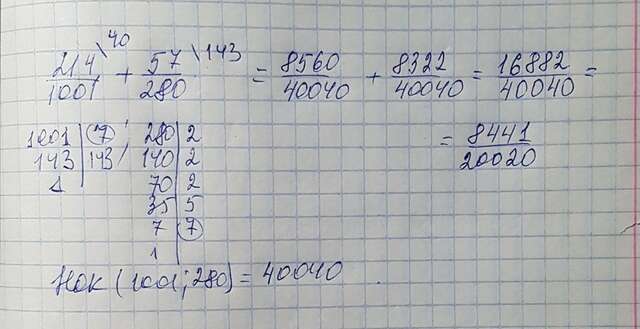 214/1001 \40 + 57/280 \143 = 8560/40040 + 8322/40040 = 16882/40040 =
= 8441/20020
1001 | 7 280 | 2
143 | 143 140 | 2
1 70 | 2
35 | 5
7 | 7
1
НОК (1001; 280) = 40040